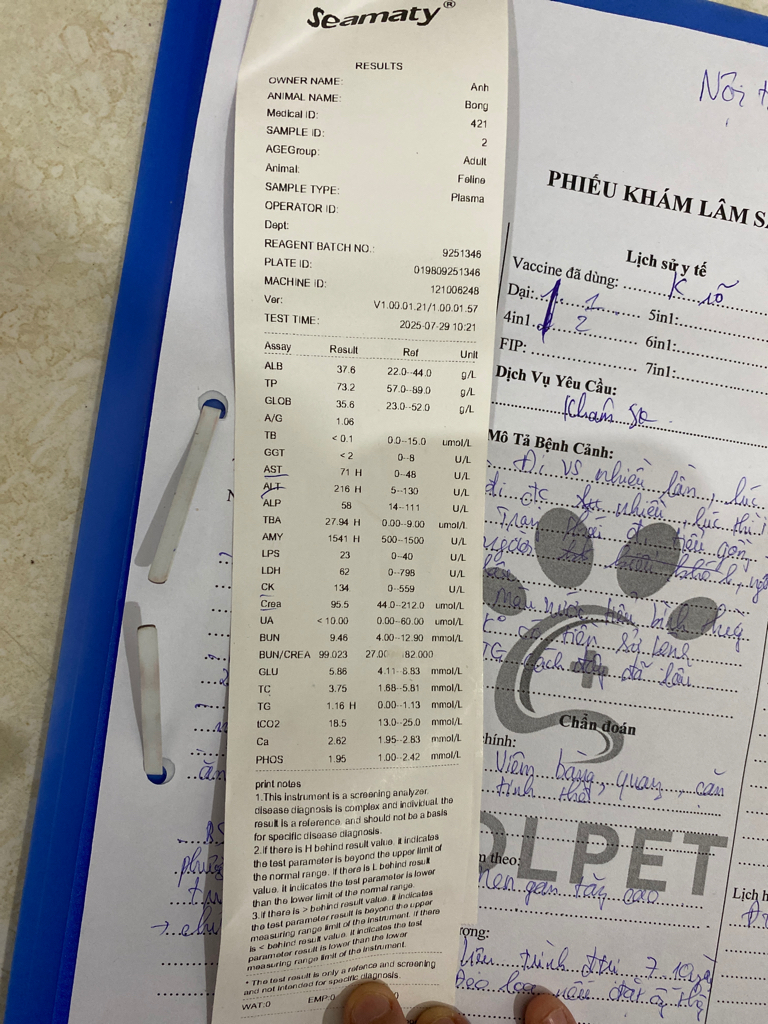 Seamaty®
RESULTS
OWNER NAME: Anh
ANIMAL NAME: Bong
Medical ID: 421
SAMPLE ID: 2
AGEGroup: Adult
Animal: Feline
SAMPLE TYPE: Plasma
OPERATOR ID:
Dept:
REAGENT BATCH NO.: 9251346
PLATE ID: 019809251346
MACHINE ID: 121006248
Ver: V1.00.01.21/1.00.01.57
TEST TIME: 2025-07-29 10:21
Assay Result Ref Unit
ALB 37.6 22.0--44.0 g/L
TP 73.2 57.0--89.0 g/L
GLOB 35.6 23.0--52.0 g/L
A/G 1.06
TB < 0.1 0.0--15.0 umol/L
GGT < 2 0--8 U/L
AST 71 H 0--48 U/L
ALT 216 H 5--130 U/L
ALP 58 14--111 U/L
TBA 27.94 H 0.00--9.00 umol/L
AMY 1541 H 500--1500 U/L
LPS 23 0--40 U/L
LDH 62 0--798 U/L
CK 134 0--559 U/L
Crea 95.5 44.0--212.0 umol/L
UA < 10.00 0.00--60.00 umol/L
BUN 9.46 4.00--12.90 mmol/L
BUN/CREA 99.023 27.00 82.000
GLU 5.86 4.11--8.83 mmol/L
TC 3.75 1.68--5.81 mmol/L
TG 1.16 H 0.00--1.13 mmol/L
tCO2 18.5 13.0--25.0 mmol/L
Ca 2.62 1.95--2.83 mmol/L
PHOS 1.95 1.00--2.42 mmol/L
print notes
1.This instrument is a screening analyzer.
disease diagnosis is complex and individual, the
result is a reference, and should not be a basis
for specific disease diagnosis.
2.If there is H behind result value. it indicates
the test parameter is beyond the upper limit of
the normal range. If there is L behind result
value. it indicates the test parameter is lower
than the lower limit of the normal range.
3.If there is > behind result value. it indicates
the test parameter result is beyond the upper
measuring range limit of the instrument. if there
is < behind result value. it indicates the test
parameter result is lower than the lower
measuring range limit of the instrument.
* The test result is only a refence and screening
and not intended for specific diagnosis.
WAT:0 EMP:0
Nơi
PHIẾU KHÁM LÂM
Lịch sử y tế
Vaccine đã dùng: K rõ
Dại: 1
5in1:
4in1 2
6in1:
FIP:
7in1:
Dịch Vụ Yêu Cầu:
Khám sk
Mô Tả Bệnh Cảnh:
Đi VS nhiều lần, lúc
đi đc nhiều lúc thì
màu nước tiểu bình thg
có tiền sử bệnh
TG cách đây đã lâu
Chẩn đoán
chính:
Viêm bàng quang, cặn
OLPET
theo:
Men gan tăng cao
Lịch h
ượng:
liệu trình đtrị 7 ngày
Đeo loa